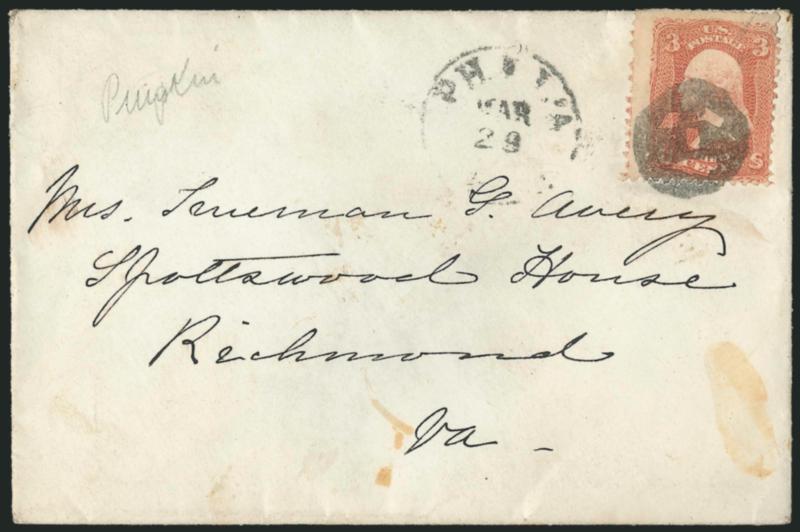 U.S. POSTAGE
3 3
PHILA
MAR
29
Mrs. Trueman G. Avery
Spottswood House
Richmond
Va